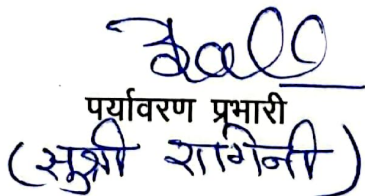 पर्यावरण प्रभारी
(सुश्री रागिनी)